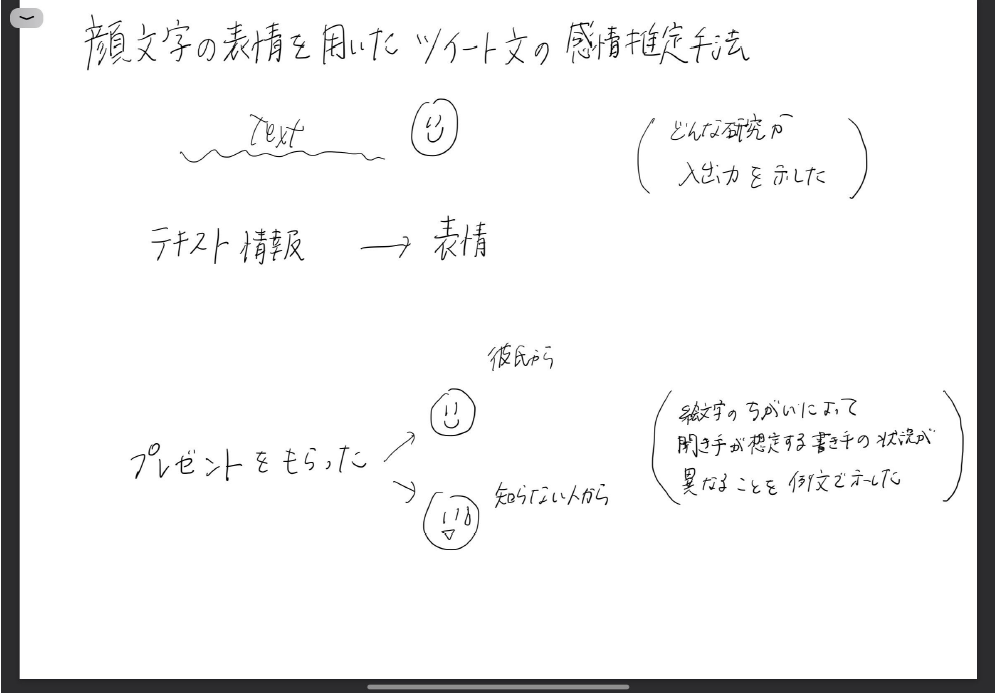 顔文字の表情を用いたツイート文の感情推定手法
Text
どんな研究か
入出力を示した
テキスト情報 → 表情
彼氏から
プレゼントをもらった
知らない人から
絵文字のちがいによって
聞き手が想定する書き手の状況が
異なることを例文で示した